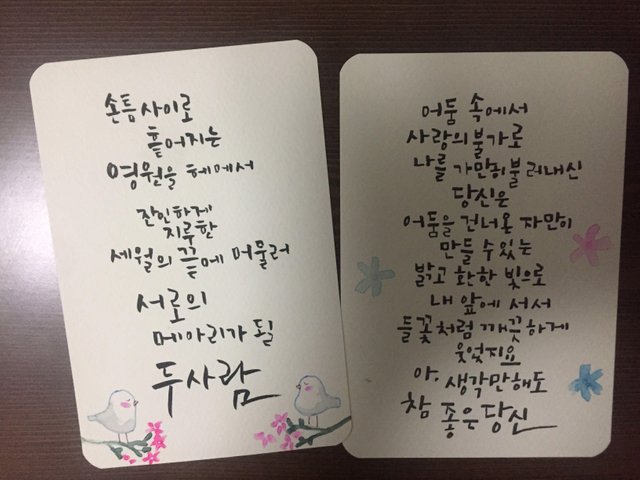 손틈사이로
흩어지는
영원을 헤에서
잔인하게
지루한
세월의 끝에 머물러
서로의
메아리가 될
두사람
어둠 속에서
사랑의불가로
나를 가만히불러내신
당신은
어둠을 건너온 자만이
만들 수있는
밝고 환한 빛으로
내 앞에 서서
들꽃처럼 깨끗하게
웃었지요
아, 생각만해도
참 좋은당신